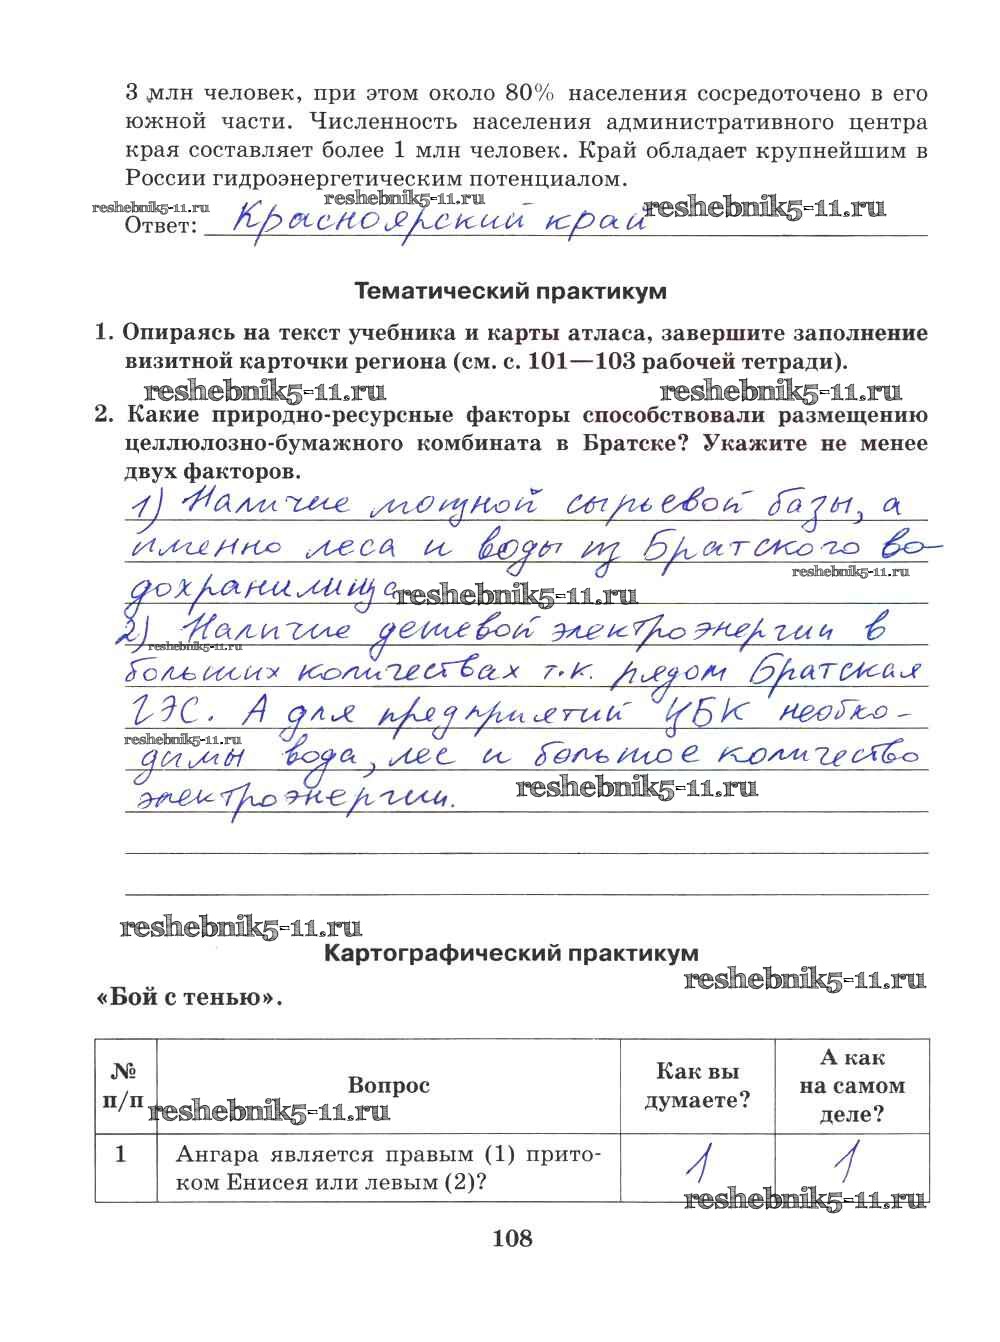 3 млн человек, при этом около 80% населения сосредоточено в его
южной части. Численность населения административного центра
края составляет более 1 млн человек. Край обладает крупнейшим в
России гидроэнергетическим потенциалом.
reshebnik5-11.ru reshebnik5-11.ru reshebnik5-11.ru
Ответ: Красноярский край
Тематический практикум
1. Опираясь на текст учебника и карты атласа, завершите заполнение
визитной карточки региона (см. с. 101—103 рабочей тетради).
reshebnik5-11.ru reshebnik5-11.ru
2. Какие природно-ресурсные факторы способствовали размещению
целлюлозно-бумажного комбината в Братске? Укажите не менее
двух факторов.
1) Наличие мощной сырьевой базы, а
именно леса и воды из Братского во-
reshebnik5-11.ru
дохранилища reshebnik5-11.ru
2) Наличие дешевой электроэнергии в
reshebnik5-11.ru
больших количествах т.к. рядом Братская
ГЭС. А для предприятий ЦБК необхо-
reshebnik5-11.ru
димы вода, лес и большое количество
электроэнергии. reshebnik5-11.ru
reshebnik5-11.ru
Картографический практикум
reshebnik5-11.ru
«Бой с тенью».
№ п/п
Вопрос
Как вы думаете?
А как на самом деле?
reshebnik5-11.ru
1 Ангара является правым (1) прито- 1 1
ком Енисея или левым (2)?
reshebnik5-11.ru
108